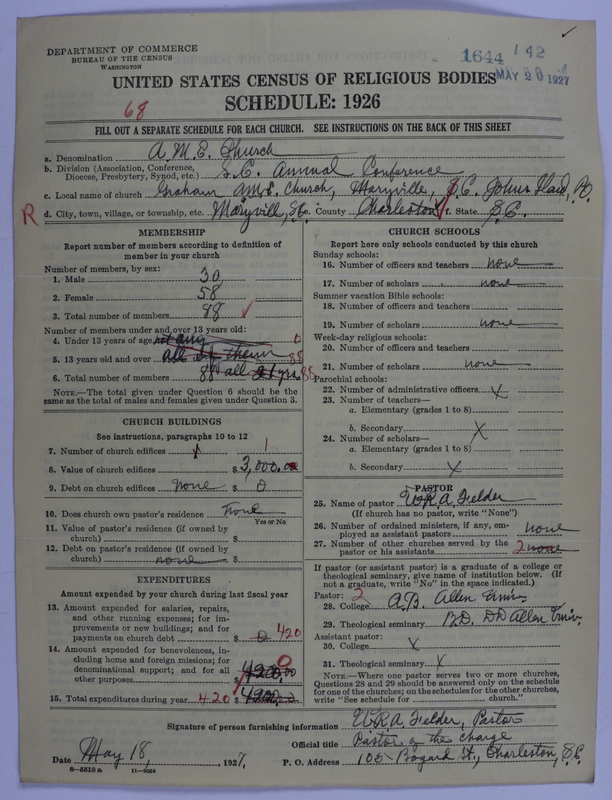 DEPARTMENT OF COMMERCE
BUREAU OF THE CENSUS
WASHINGTON
1644 142
MAY 28 1927
UNITED STATES CENSUS OF RELIGIOUS BODIES
SCHEDULE: 1926
68
FILL OUT A SEPARATE SCHEDULE FOR EACH CHURCH. SEE INSTRUCTIONS ON THE BACK OF THIS SHEET
a. Denomination A.M.E. Church
b. Division (Association, Conference, Diocese, Presbytery, Synod, etc.) S.C. Annual Conference
c. Local name of church Graham AME. Church, Maryville, S.C. Johns Island, PO.
R d. City, town, village, or township, etc. Maryvill, St. e. County Charleston f. State S.C.
MEMBERSHIP
Report number of members according to definition of member in your church
Number of members, by sex:
1. Male 30
2. Female 58
3. Total number of members 88
Number of members under and over 13 years old:
4. Under 13 years of age not any 0
5. 13 years old and over all of them 88
6. Total number of members 88 all 21 yrs 88
NOTE.—The total given under Question 6 should be the same as the total of males and females given under Question 3.
CHURCH BUILDINGS
See instructions, paragraphs 10 to 12
7. Number of church edifices 1 1
8. Value of church edifices $ 3,000.00
9. Debt on church edifices none $ 0
10. Does church own pastor's residence? none
Yes or No
11. Value of pastor's residence (if owned by church) $
12. Debt on pastor's residence (if owned by church) none $
EXPENDITURES
Amount expended by your church during last fiscal year
13. Amount expended for salaries, repairs, and other running expenses; for improvements or new buildings; and for payments on church debt $ 0 420
14. Amount expended for benevolences, including home and foreign missions; for denominational support; and for all other purposes $ 4200.00 0
15. Total expenditures during year 420 $ 4200.0
CHURCH SCHOOLS
Report here only schools conducted by this church
Sunday schools:
16. Number of officers and teachers none
17. Number of scholars none
Summer vacation Bible schools:
18. Number of officers and teachers
19. Number of scholars none
Week-day religious schools:
20. Number of officers and teachers
21. Number of scholars none
Parochial schools:
22. Number of administrative officers X
23. Number of teachers—
a. Elementary (grades 1 to 8)
b. Secondary X
24. Number of scholars—
a. Elementary (grades 1 to 8)
b. Secondary X
PASTOR
25. Name of pastor W.R.A. Fielder
(If church has no pastor, write "None")
26. Number of ordained ministers, if any, employed as assistant pastors none
27. Number of other churches served by the pastor or his assistants 2 none
If pastor (or assistant pastor) is a graduate of a college or theological seminary, give name of institution below. (If not a graduate, write "No" in the space indicated.)
Pastor: 2
28. College A.B. Allen Univ.
29. Theological seminary B.D. DD Allen Univ.
Assistant pastor:
30. College X
31. Theological seminary X
NOTE.—Where one pastor serves two or more churches, Questions 28 and 29 should be answered only on the schedule for one of the churches; on the schedules for the other churches, write "See schedule for church."
Signature of person furnishing information W.R.A. Fielder, Pastor
Official title Pastor of the charge
Date May 18, 1927. P. O. Address 105 Bogard St., Charleston, S.C.
8—5518a 11—9664